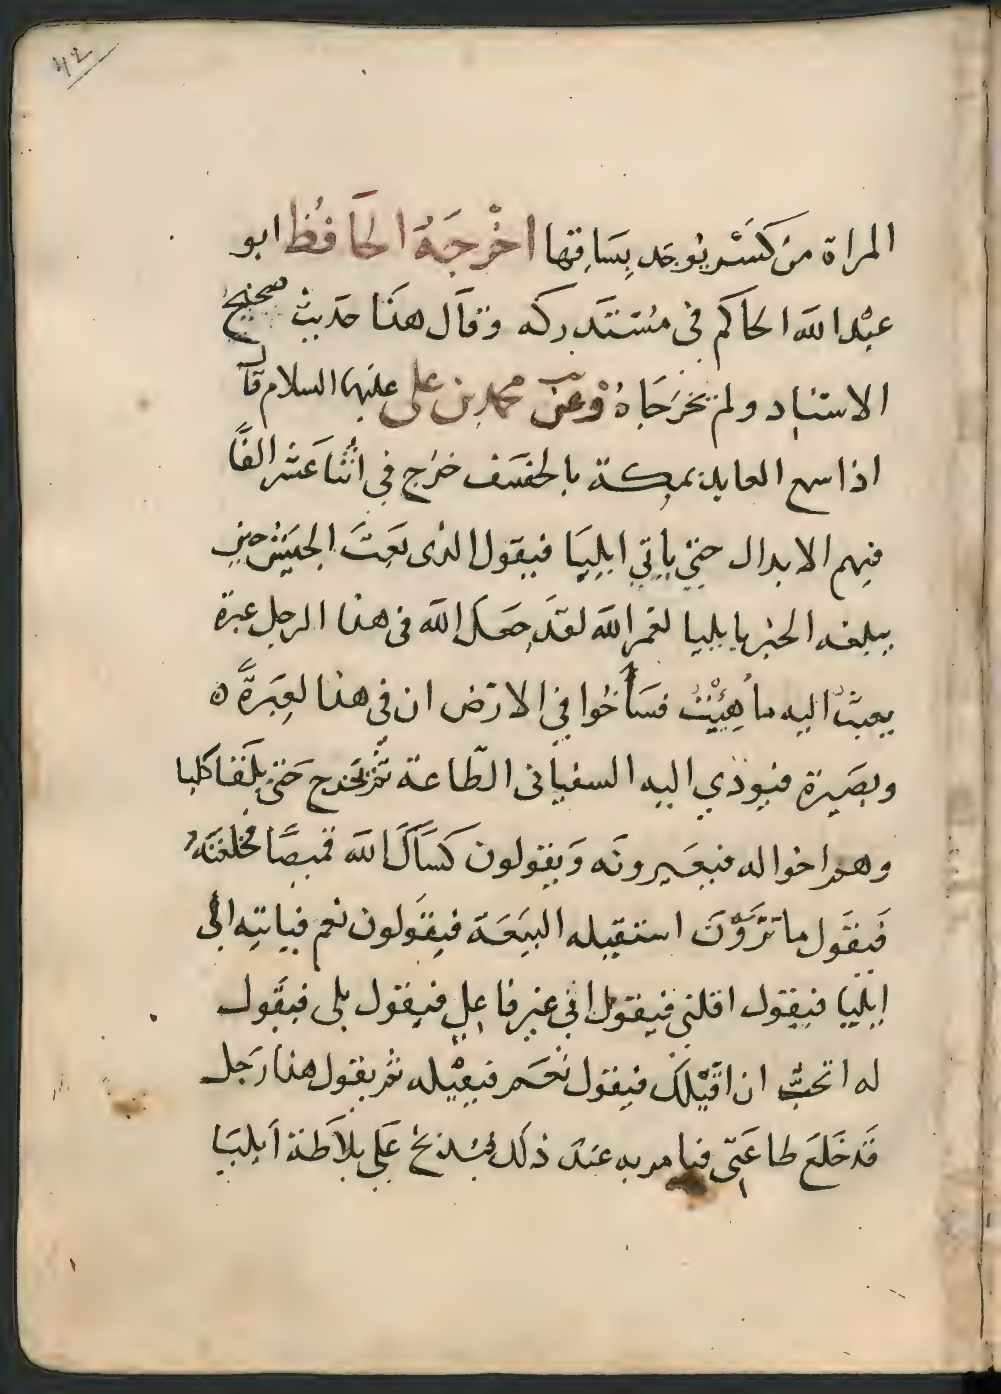 ٤٢
المراة من كسر يوجد بساقها اخرجه الحافظ ابو
عبد الله الحاكم في مستدركه وقال هذا حديث صحيح
الاسناد ولم يخرجاه وعن محمد بن علي عليهما السلام قال
اذا سمع العايذ بمكة بالخسف خرج في اثنا عشر الفًا
فيهم الابدال حتى ياتي ايليا فيقول الذي بعث الجيش حين
يبلغه الخبر بايليا لعمر الله لقد جعل الله في هذا الرجل عبرة
بعثت اليه ما فساخوا في الارض ان في هذا لعبرةً
وبصيرة فيوذي اليه السفياني الطاعة ثم يخرج حتى يلقا كلبا
وهم اخواله فيعيرونه ويقولون كساك الله قميصًا فخلعته
فيقول ما ترون استقيله البيعة فيقولون نعم فياتيه الى
ايليا فيقول اقلني فيقول اني غير فاعل فيقول بلى فيقول
له اتحب ان اقيلك فيقول نعم فيقيله ثم يقول هذا رجل
قد خلع طاعتي فيامر به عند ذلك فيذبح على بلاطة ايليا